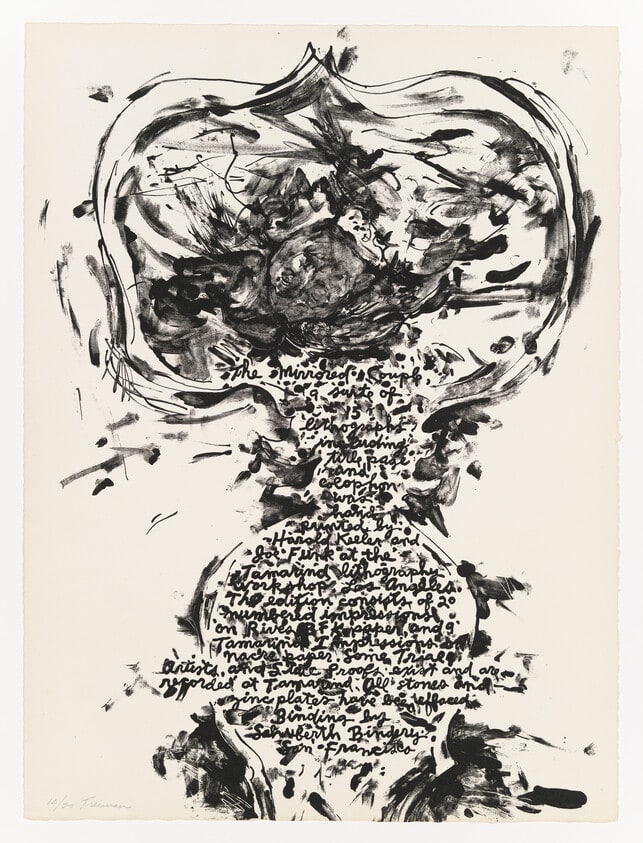 The Mirrored Couple,
a suite of
15
lithographs
including
title page
and
colophon
was
hand
printed by
Harold Keeler and
Joe Funk at the
Tamarind lithography
workshop Los Angeles.
The edition consists of 20
numbered impressions
on Rives BFK paper, and 9
Tamarind impressions on
nacre paper. Some Trial,
Artists, and State Proofs exist and are
recorded at Tamarind. All stones and
zinc plates have been effaced.
Binding by
Schuberth Bindery.
San Francisco
10/20 Freeman